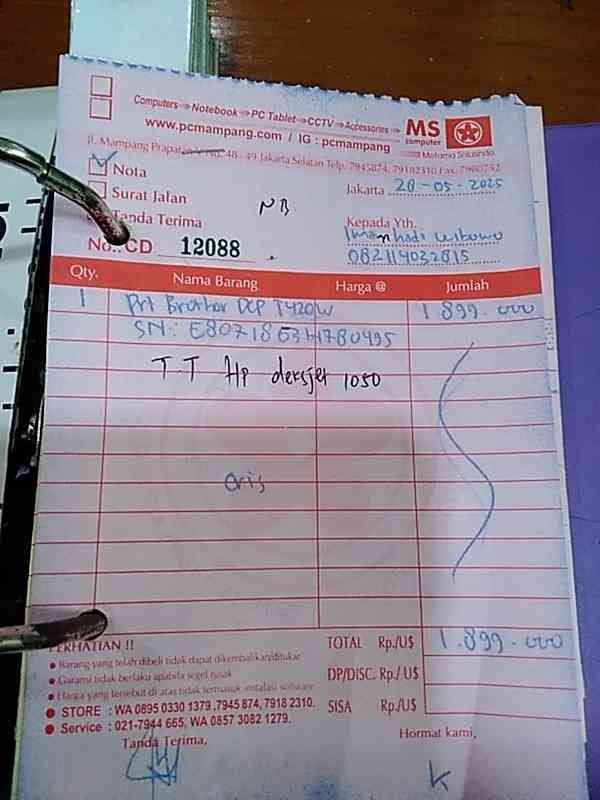 Computers ⇒ Notebook ⇒ PC Tablet ⇒ CCTV ⇒ Accessories ⇒
MS
computer
Metama Solusindo
www.pcmampang.com / IG : pcmampang
Jl. Mampang Prapatan V No. 48 - 49 Jakarta Selatan Telp. 7945874, 79182310 Fax. 7980752
Nota
Surat Jalan
Tanda Terima
NB
Jakarta 28-05-2025
Kepada Yth.
Imanhadi Wibowo
082114032815
No.: CD 12088
Qty. Nama Barang Harga @ Jumlah
1 Prt Brother DCP T420W 1.899.000
SN: E80718
T.T Hp deksjet 1050
aris
PERHATIAN !!
● Barang yang telah dibeli tidak dapat dikembalikan/ditukar
● Garansi tidak berlaku apabila segel rusak
● Harga yang tersebut di atas tidak termasuk instalasi software
● STORE : WA 0895 0330 1379 ,7945 874, 7918 2310.
● Service : 021-7944 665, WA 0857 3082 1279.
TOTAL Rp./U$ 1.899.000
DP/DISC. Rp./ U$
SISA Rp./U$
Tanda Terima,
Hormat kami,